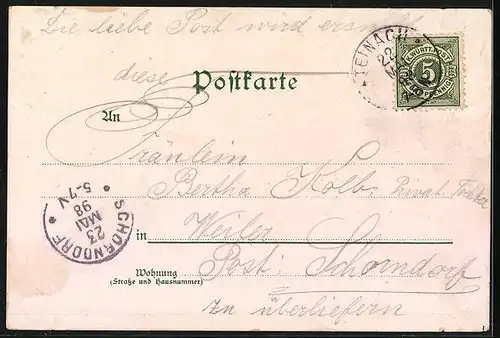 Die liebe Post wird ersucht
diese
Postkarte
TEINACH
22
MAI
K. WÜRTT. POST
5
PFENNIG
An
Fräulein
Bertha Kolb, Privat
in Weiler
Post: Schorndorf
Wohnung
(Straße und Hausnummer)
zu überliefern
SCHORNDORF
23
MAI
98
5-7N